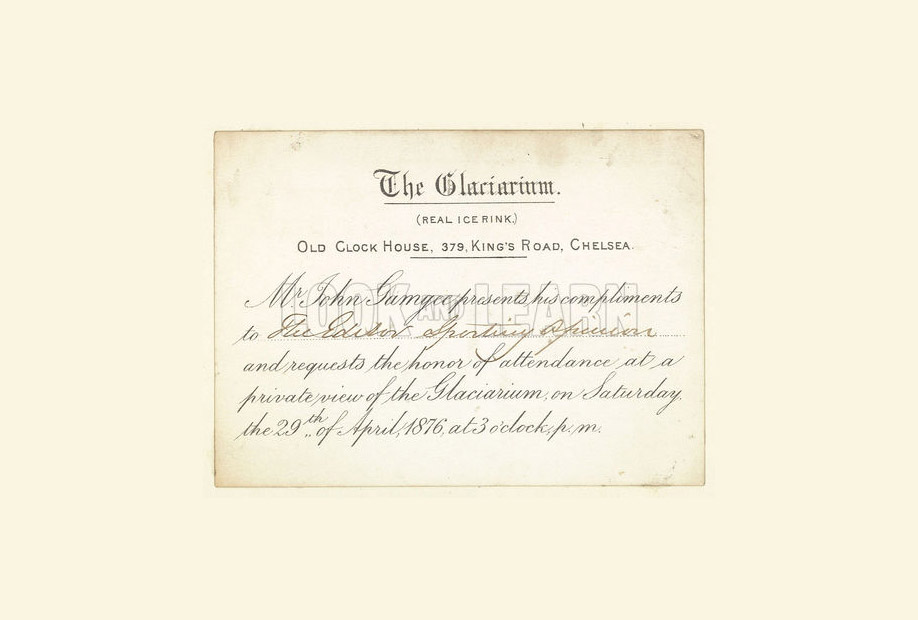 The Glaciarium.
(REAL ICE RINK.)
OLD CLOCK HOUSE, 379, KING'S ROAD, CHELSEA.
Mr. John Gamgee presents his compliments
to The Editor Sporting Opinion
and requests the honor of attendance at a
private view of the Glaciarium, on Saturday,
the 29th of April, 1876, at 3 o'clock, p.m.
LOOK AND LEARN